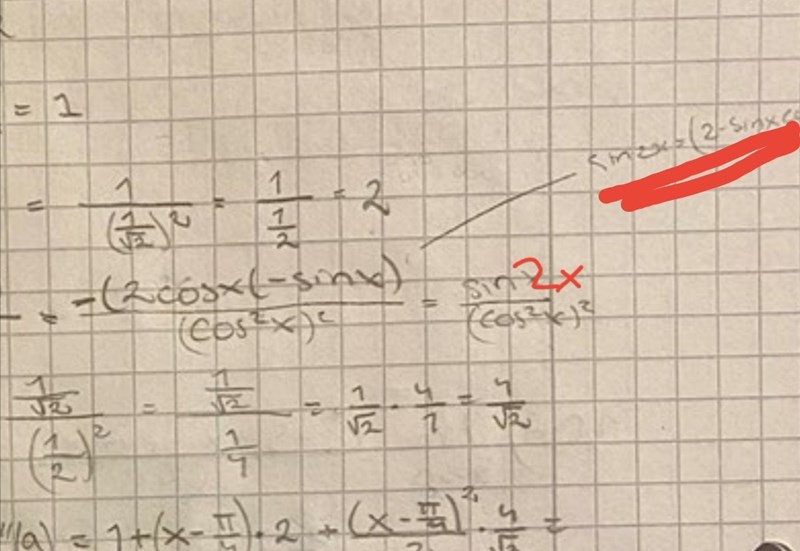 = 1
sin2x=(2-sinx
= 1/(1/√2)² = 1/(1/2) = 2
= -(2cosx(-sinx)/(cos²x)² = sin2x/(cos²x)²
(1/√2)/(1/2)² = (1/√2)/(1/4) = 1/√2 · 4/1 = 4/√2
"(a) = 1+(x-π/4)·2 + (x-π/4)²/2 · 4/√2 =